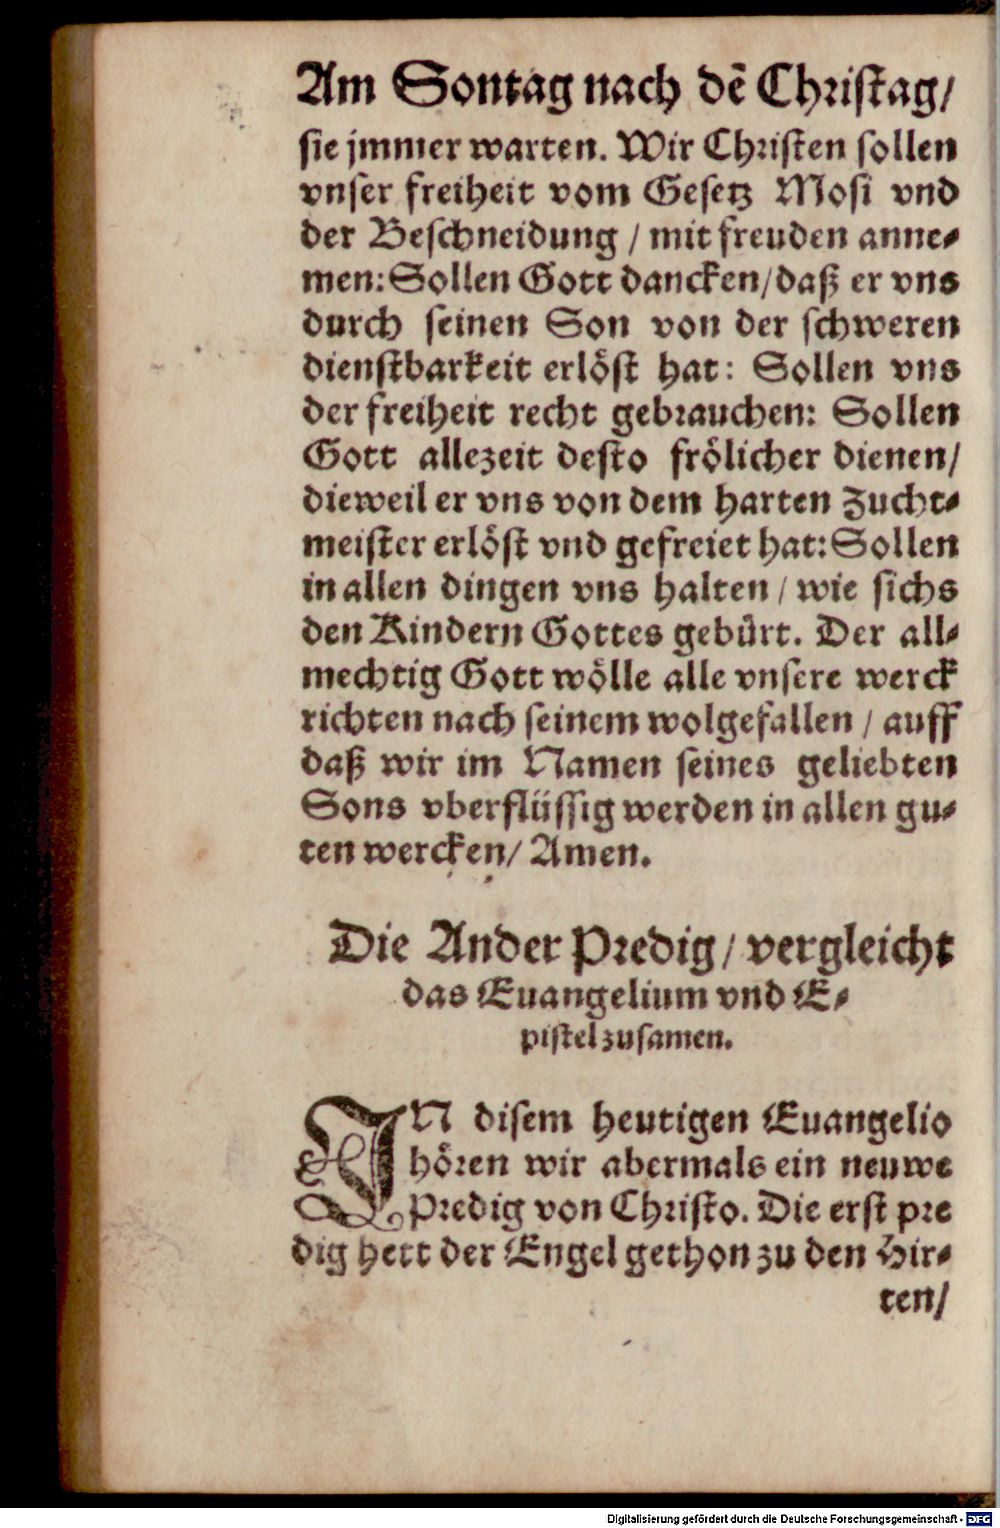 Am Sontag nach dē Christag/
sie jmmer warten. Wir Christen sollen
vnser freiheit vom Gesetz Mosi vnd
der Beschneidung / mit freuden anne⸗
men: Sollen Gott dancken/daß er vns
durch seinen Son von der schweren
dienstbarkeit erlöst hat: Sollen vns
der freiheit recht gebrauchen: Sollen
Gott allezeit desto frölicher dienen/
dieweil er vns von dem harten Zucht⸗
meister erlöst vnd gefreiet hat: Sollen
in allen dingen vns halten / wie sichs
den Kindern Gottes gebürt. Der all⸗
mechtig Gott wölle alle vnsere werck
richten nach seinem wolgefallen / auff
daß wir im Namen seines geliebten
Sons vberflüssig werden in allen gu⸗
ten wercken/ Amen.
Die Ander Predig/ vergleicht
das Euangelium vnd E⸗
pistel zusamen.
IN disem heutigen Euangelio
hören wir abermals ein neuwe
Predig von Christo. Die erst pre
dig hett der Engel gethon zu den Hir⸗
ten/
Digitalisierung gefördert durch die Deutsche Forschungsgemeinschaft - DFG